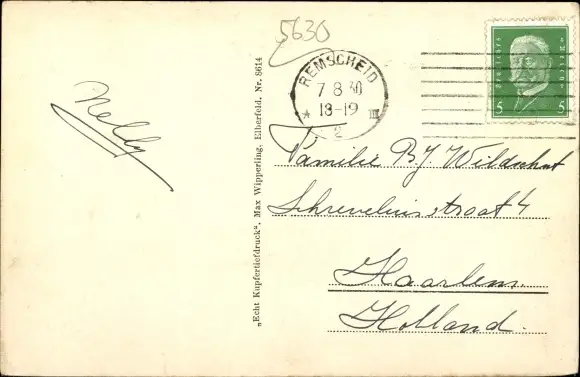 5630
REMSCHEID
7 8 30
18-19
* III
2
Deutsches Reich
5 5
Nelly
Familie B. J. Wildschut
Schreveliusstraat 4
Haarlem.
Holland.
„Echt Kupfertiefdruck“, Max Wipperling, Elberfeld. Nr. 8614